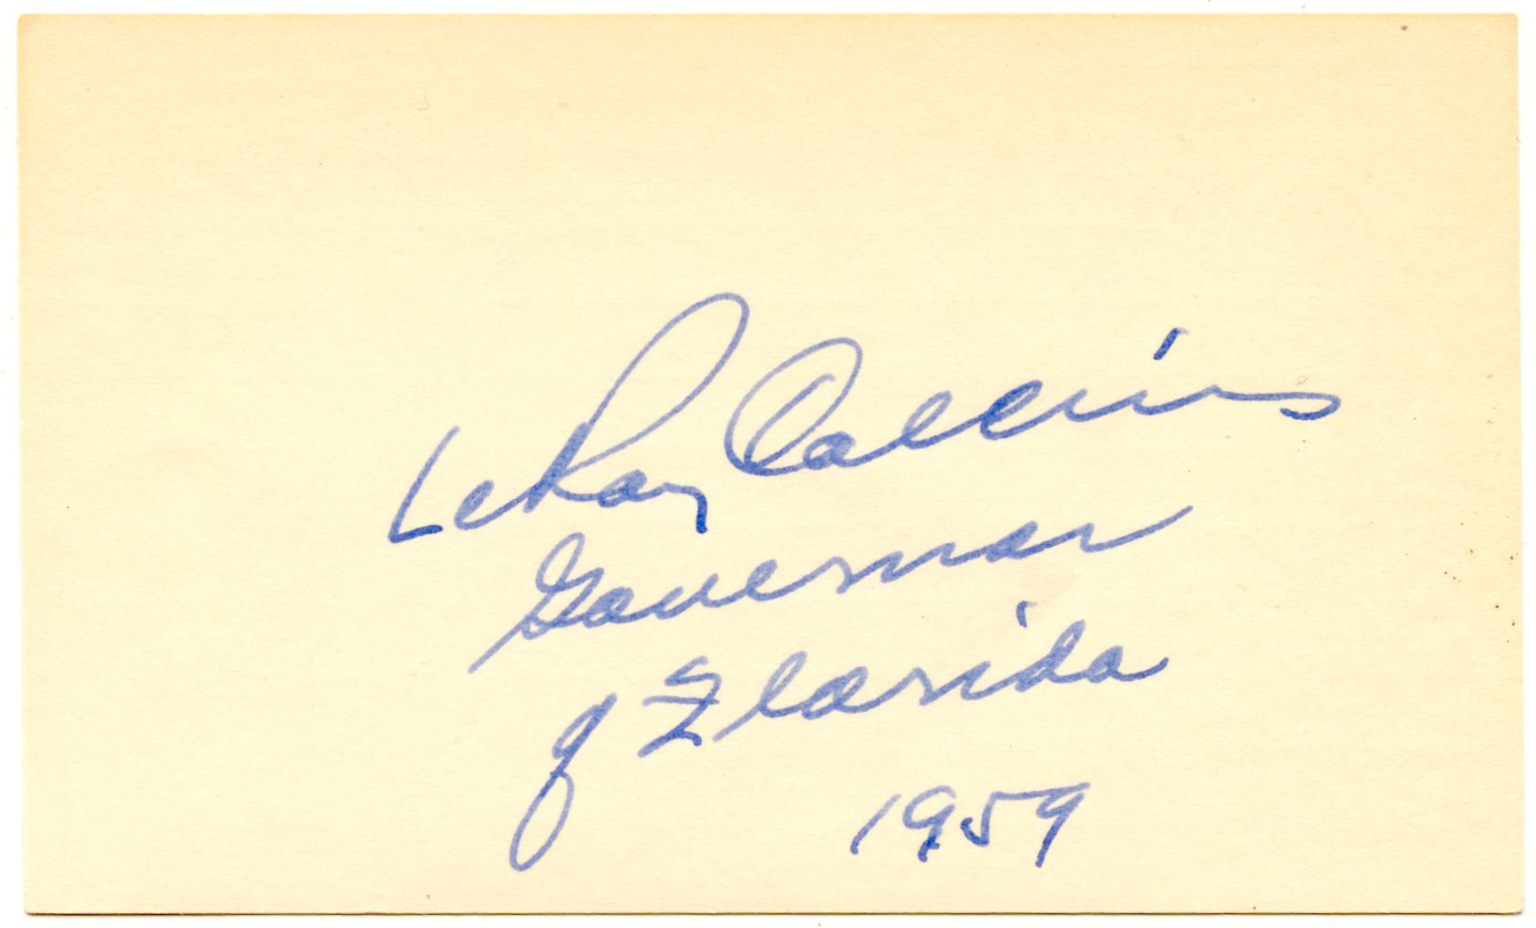 LeRoy Collins
Governor
of Florida
1959